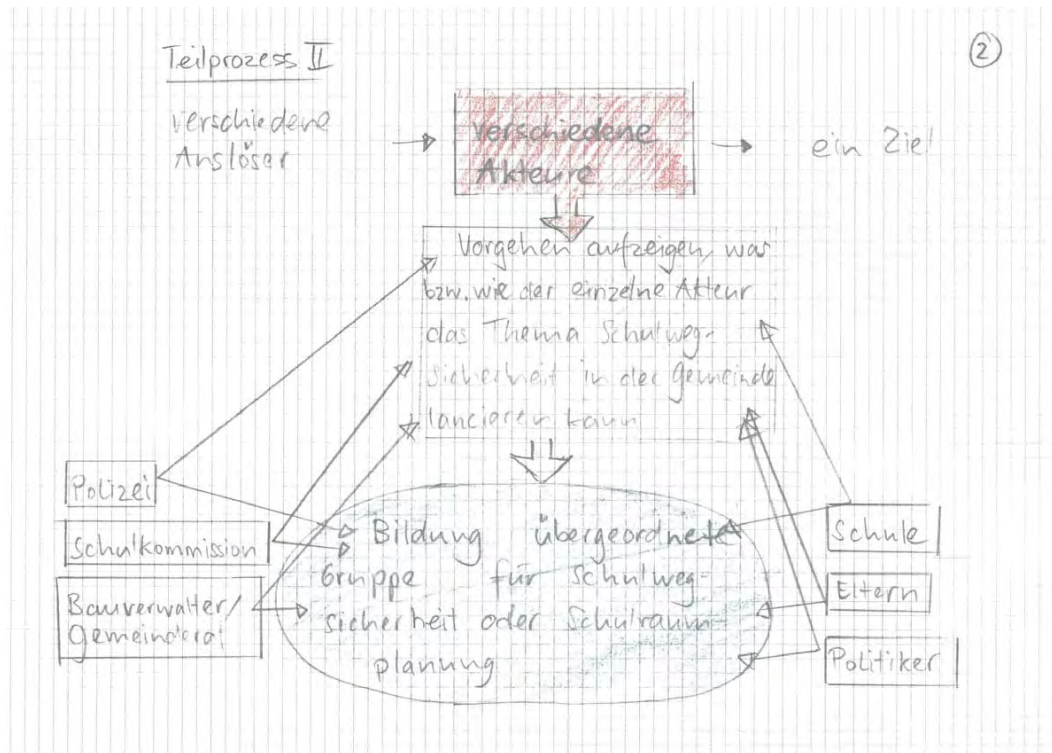 Teilprozess II
②
verschiedene
Auslöser
verschiedene
Akteure
ein Ziel
Vorgehen aufzeigen, was
bzw. wie der einzelne Akteur
das Thema Schulweg-
sicherheit in der Gemeinde
lancieren kann
Polizei
Schulkommission
Bauverwalter/
Gemeinderat
Bildung übergeordnete
Gruppe für Schulweg-
sicherheit oder Schulraum-
planung
Schule
Eltern
Politiker